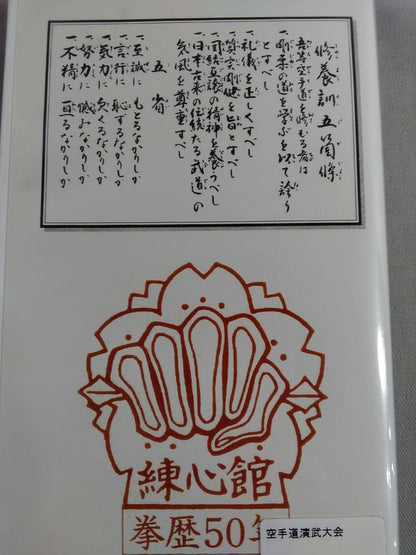 修養訓五箇條
吾等空手道を修むる者は
一剛柔の道を学ぶを以て誇り
とすべし
一礼儀を正しくすべし
一質実剛健を旨とすべし
一団結互譲の精神を養うべし
一日本古来の伝統たる武道の
気風を尊重すべし
五省
一至誠に もとるなかりしか
一言行に 恥ずるなかりしか
一気力に 欠くるなかりしか
一努力に 憾みなかりしか
一不精に 亘るなかりしか
練心館
拳歴50年
空手道演武大会